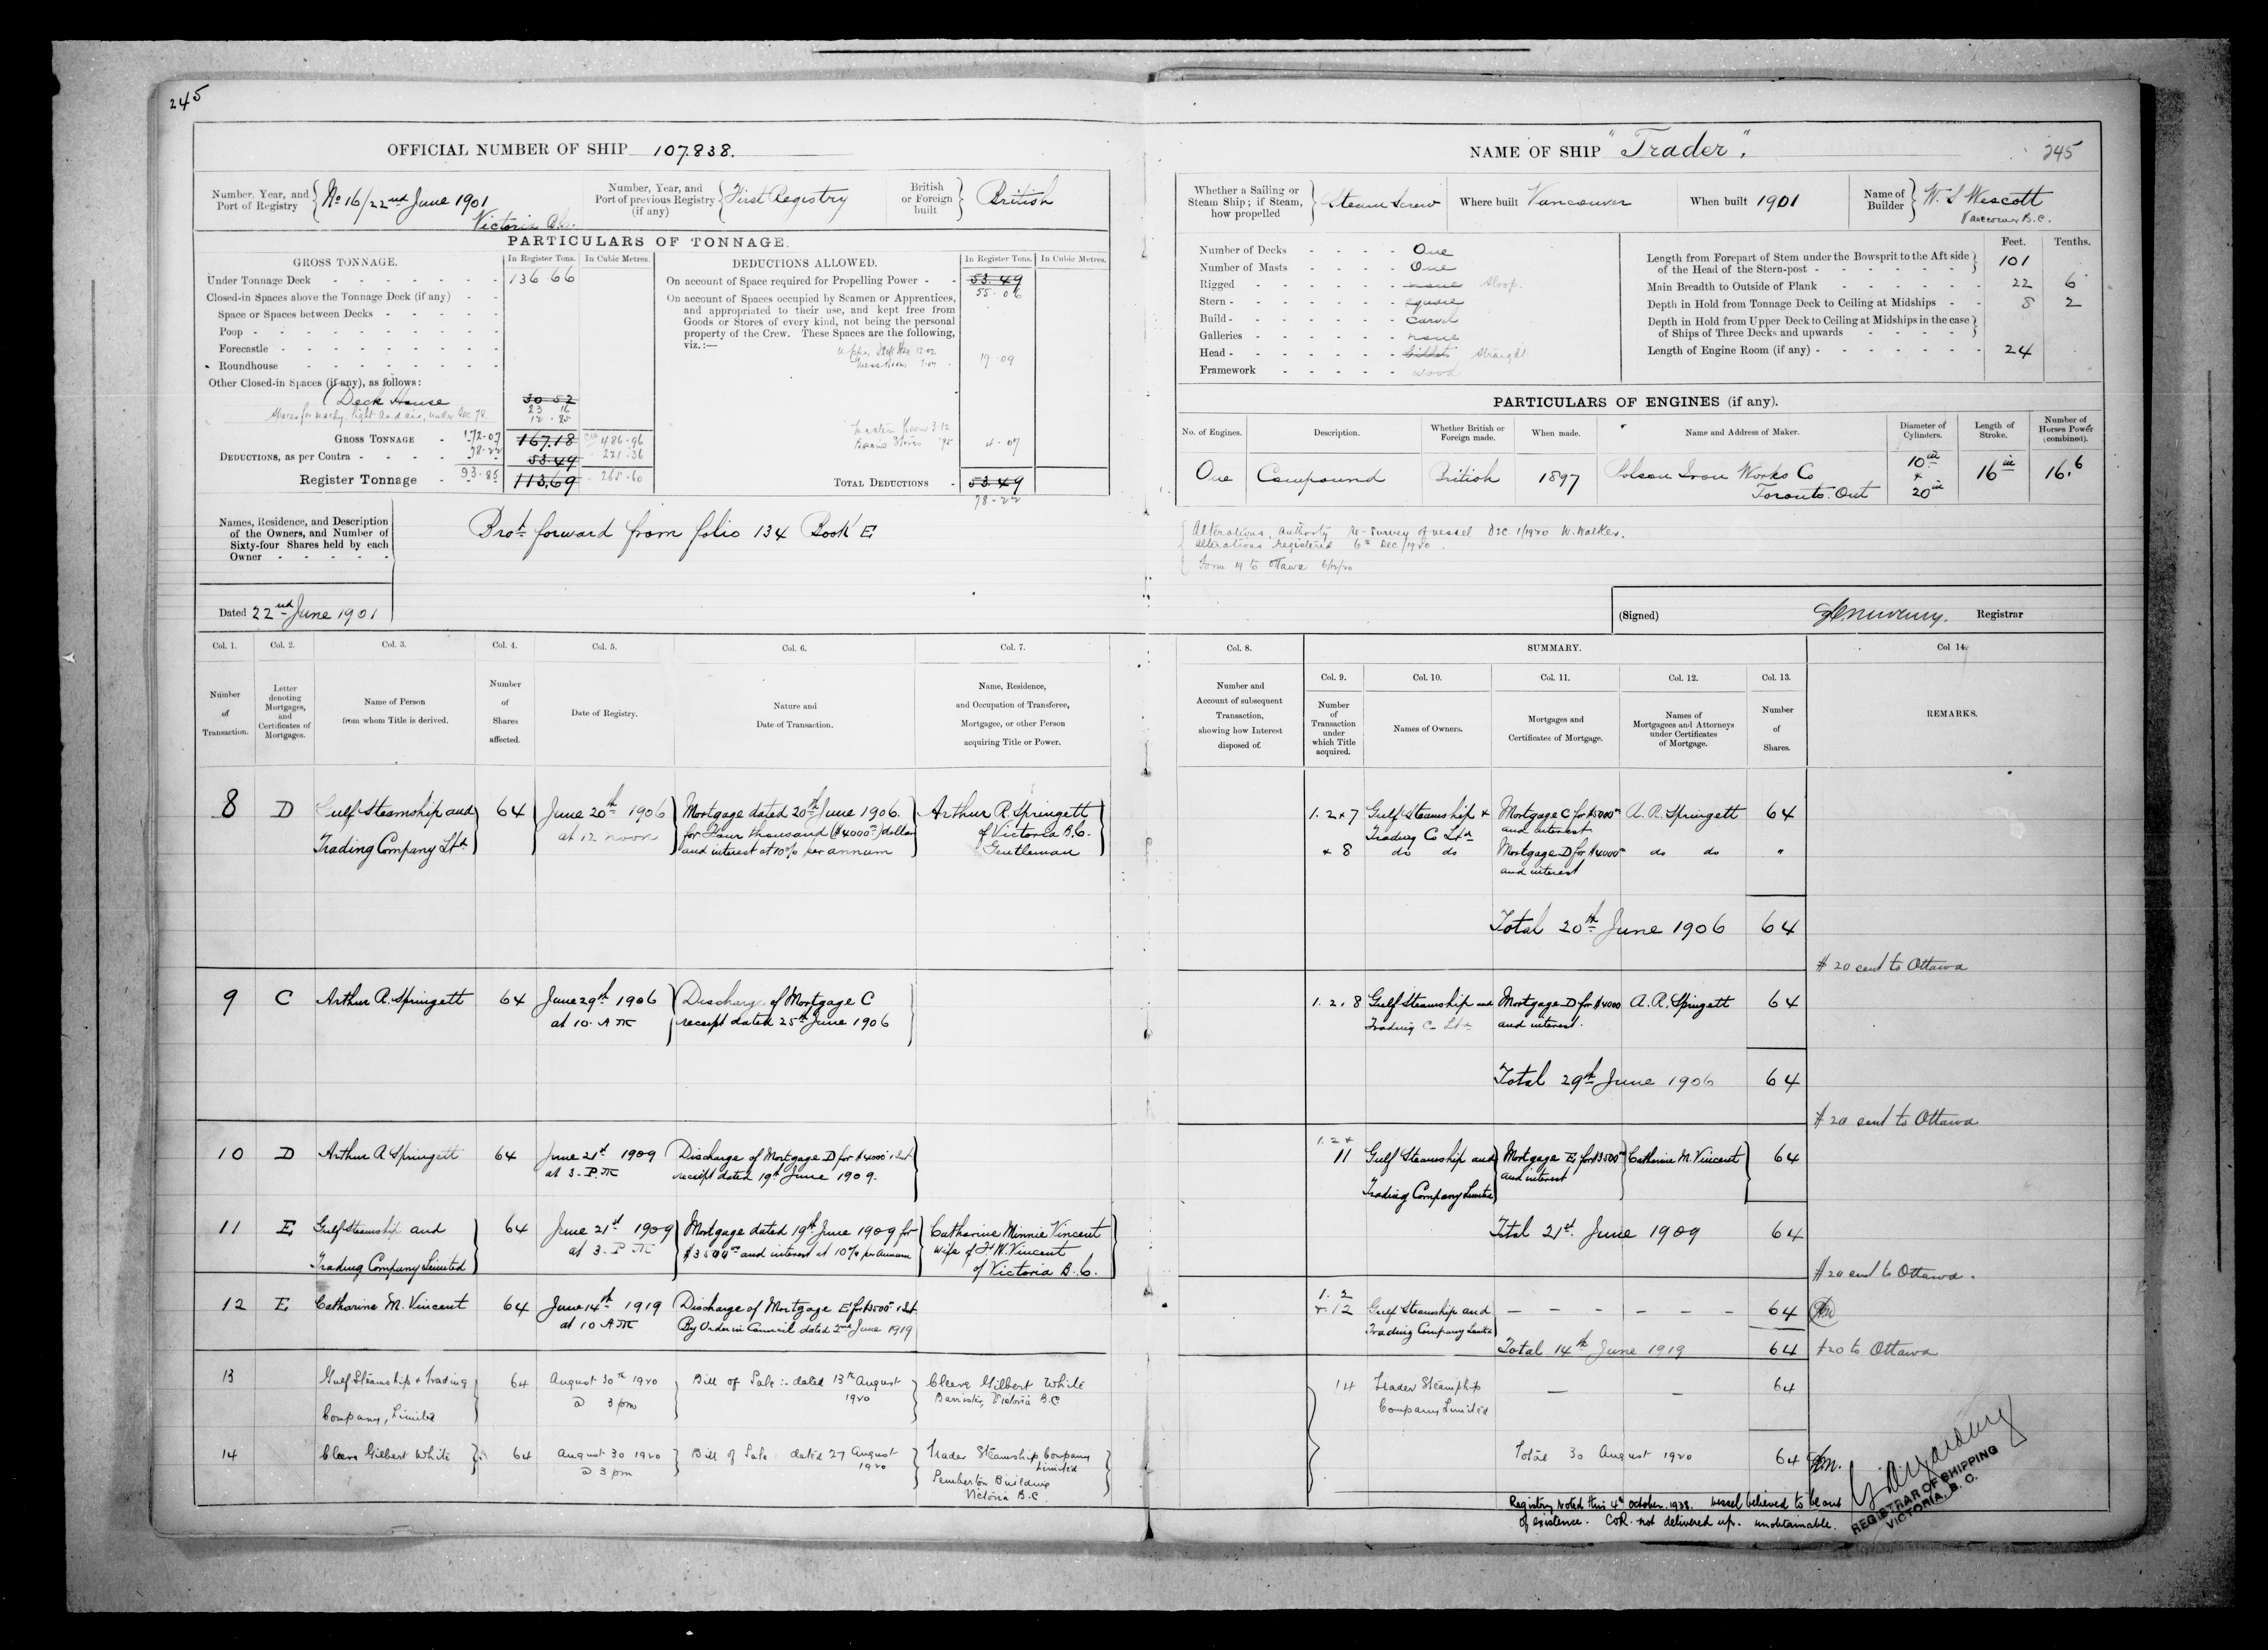 245
OFFICIAL NUMBER OF SHIP 107.838.
Number, Year, and Port of Registry No 16/22nd June 1901
Victoria B.C.
Number, Year, and Port of previous Registry (if any) First Registry
British or Foreign built British
PARTICULARS OF TONNAGE.
GROSS TONNAGE.
In Register Tons.
In Cubic Metres.
Under Tonnage Deck 136 66
Closed-in Spaces above the Tonnage Deck (if any)
Space or Spaces between Decks
Poop
Forecastle
Roundhouse
Other Closed-in Spaces (if any), as follows:
Deck House 30 52
23 16
Spaces for machy. light and air, under Sec 78. 12.25
GROSS TONNAGE 172.07 167.18 486.96
DEDUCTIONS, as per Contra 78.22 53.49 221.36
Register Tonnage 93.85 113.69 265.60
DEDUCTIONS ALLOWED.
In Register Tons.
In Cubic Metres.
On account of Space required for Propelling Power 53.49
55.06
On account of Spaces occupied by Seamen or Apprentices,
and appropriated to their use, and kept free from
Goods or Stores of every kind, not being the personal
property of the Crew. These Spaces are the following,
viz.:—
19.09
4.07
TOTAL DEDUCTIONS 53.49
78-22
Names, Residence, and Description
of the Owners, and Number of
Sixty-four Shares held by each
Owner
Brot forward from folio 134 Book E
Dated 22nd June 1901
NAME OF SHIP "Trader".
245
Whether a Sailing or Steam Ship; if Steam, how propelled Steam Screw
Where built Vancouver
When built 1901
Name of Builder W. S Wescott
Vancouver B.C.
Number of Decks One
Number of Masts One
Rigged none Sloop.
Stern square
Build carvel
Galleries none
Head billet straight
Framework wood
Feet. Tenths.
Length from Forepart of Stem under the Bowsprit to the Aft side
of the Head of the Stern-post 101
Main Breadth to Outside of Plank 22 6
Depth in Hold from Tonnage Deck to Ceiling at Midships 8 2
Depth in Hold from Upper Deck to Ceiling at Midships in the case
of Ships of Three Decks and upwards
Length of Engine Room (if any) 24
PARTICULARS OF ENGINES (if any).
No. of Engines. Description. Whether British or Foreign made. When made. Name and Address of Maker. Diameter of Cylinders. Length of Stroke. Number of Horses Power (combined).
One Compound British 1897 Polson Iron Works Co
Toronto. Ont
10in + 20in 16in 16.6
Alterations, Authority Re-Survey of vessel Dec. 1/1920 W. Walker.
Alterations registered 6th Dec/1920
Form 19 to Ottawa 6/12/20
(Signed) Registrar
Col. 1. Col. 2. Col. 3. Col. 4. Col. 5. Col. 6. Col. 7.
Number of Transaction.
Letter denoting Mortgages, and Certificates of Mortgages.
Name of Person from whom Title is derived.
Number of Shares affected.
Date of Registry.
Nature and Date of Transaction.
Name, Residence, and Occupation of Transferee, Mortgagee, or other Person acquiring Title or Power.
Col. 8. SUMMARY. Col 14.
Col. 9. Col. 10. Col. 11. Col. 12. Col. 13.
Number and Account of subsequent Transaction, showing how Interest disposed of.
Number of Transaction under which Title acquired.
Names of Owners.
Mortgages and Certificates of Mortgage.
Names of Mortgagees and Attorneys under Certificates of Mortgage.
Number of Shares.
REMARKS.
8 D Gulf Steamship and 64 June 20th 1906 Mortgage dated 20th June 1906. Arthur R. Springett
Trading Company Ltd. at 12 noon for Four thousand ($4000.00) dollars of Victoria B.C.
and interest at 10% per annum Gentleman
1. 2 + 7 Gulf Steamship + Mortgage C for $5000.00 A. R. Springett 64
Trading Co Ltd and interest
+ 8 do do Mortgage D for $4000.00 do do "
and interest
Total 20th June 1906 64
# 20 sent to Ottawa
9 C Arthur R. Springett 64 June 29th 1906 Discharge of Mortgage C
at 10. A M receipt dated 25th June 1906
1. 2. 8 Gulf Steamship and Mortgage D for $4000 A. R. Springett 64
Trading Co Ltd and interest.
Total 29th June 1906 64
# 20 sent to Ottawa
10 D Arthur R Springett 64 June 21st 1909 Discharge of Mortgage D for $4000 & Int.
at 3. P. M receipt dated 19th June 1909.
1. 2 +
11 Gulf Steamship and Mortgage E for $3500.00 Catharine M. Vincent 64
Trading Company Limited and interest
11 E Gulf Steamship and 64 June 21st 1909 Mortgage dated 19th June 1909 for Catharine Minnie Vincent
at 3. P M $3500.00 and interest at 10% per annum wife of F. W. Vincent
Trading Company Limited of Victoria B.C.
Total 21st June 1909 64
# 20 sent to Ottawa.
12 E Catharine M. Vincent 64 June 14th 1919 Discharge of Mortgage E for $3500 & Int.
at 10 A M By Order in Council dated 2nd June 1919
1. 2
+ 12 Gulf Steamship and — — — — — — 64
Trading Company Limited
Total 14th June 1919 64 #20 to Ottawa
13 Gulf Steamship + Trading 64 August 30th 1920 Bill of Sale :- dated 13th August Cleeve Gilbert White
Company, Limited @ 3 pm 1920 Barrister, Victoria B.C
14 Trader Steamship — — 64
Company Limited
14 Cleeve Gilbert White 64 August 30 1920 Bill of Sale: dated 27 August Trader Steamship Company
@ 3 pm 1920 Limited
Pemberton Building
Victoria B.C.
Total 30 August 1920 64
Registry Noted this 4th October. 1938. Vessel believed to be out
of existence. C.O.R. not delivered up. unobtainable.
REGISTRAR OF SHIPPING
VICTORIA, B. C.